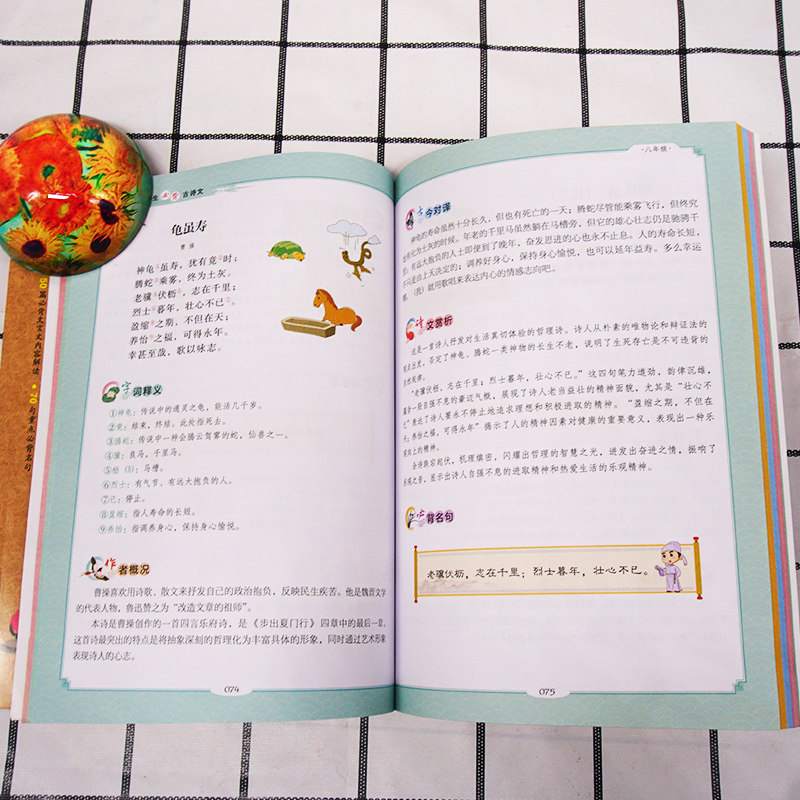 生必背古诗文
龟虽寿
曹操
神龟①虽寿，犹有竟②时；
腾蛇③乘雾，终为土灰。
老骥④伏枥⑤，志在千里；
烈士⑥暮年，壮心不已⑦。
盈缩⑧之期，不但在天；
养怡⑨之福，可得永年。
幸甚至哉，歌以咏志。
字词释义
①神龟：传说中的通灵之龟，能活几千岁。
②竟：结束，终结。此处指死去。
③腾蛇：传说中一种会腾云驾雾的蛇，仙兽之一。
④骥：良马，千里马。
⑤枥（lì）：马槽。
⑥烈士：有气节、有远大抱负的人。
⑦已：停止。
⑧盈缩：指人寿命的长短。
⑨养怡：指调养身心，保持身心愉悦。
作者概况
曹操喜欢用诗歌、散文来抒发自己的政治抱负，反映民生疾苦。他是魏晋文学
的代表人物，鲁迅赞之为“改造文章的祖师”。
本诗是曹操创作的一首四言乐府诗，是《步出夏门行》四章中的最后一章。
这首诗最突出的特点是将抽象深刻的哲理化为丰富具体的形象，同时通过艺术形象
表现诗人的心志。
074
50篇必背文言文内容解读·70句重点必背名句
·八年级·
古今对译
神龟的寿命虽然十分长久，但也有死亡的一天；腾蛇尽管能乘雾飞行，但终究
也有化为土灰的时候。年老的千里马虽然躺在马槽旁，但它的雄心壮志仍是驰骋千
里；有远大抱负的人士即便到了晚年，奋发思进的心也永不止息。人的寿命长短，
不只是由上天决定的；调养好身心，保持身心愉悦，也可以延年益寿。多么幸运
啊，（我）就用歌唱来表达内心的情感志向吧。
诗文赏析
这是一首诗人抒发对生活真切体验的哲理诗。诗人从朴素的唯物论和辩证法的
观点出发，否定了神龟、腾蛇一类神物的长生不老，说明了生死存亡是不可违背的
自然规律。
“老骥伏枥，志在千里；烈士暮年，壮心不已。”这四句笔力遒劲，韵律沉雄，
蕴含一股自强不息的豪迈气概，展现了诗人老当益壮的精神面貌，尤其是“壮心不
已”表达了诗人要永不停止地追求理想和积极进取的精神。“盈缩之期，不但在
天；养怡之福，可得永年”揭示了人的精神因素对健康的重要意义，表现出一种乐
观向上的精神。
全诗跌宕起伏，机理缜密、闪耀出哲理的智慧之光，迸发出奋进之情，振响了
乐观之音，显示出诗人自强不息的进取精神和热爱生活的乐观精神。
必背名句
老骥伏枥，志在千里；烈士暮年，壮心不已。
075